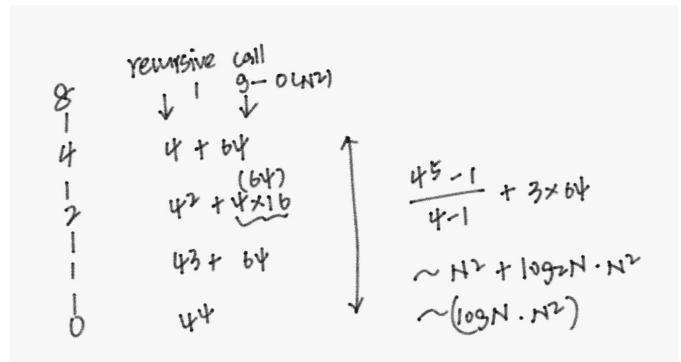 recursive call
8 1 g — O(N2)
4 4 + 64
(64)
2 4² + 4×16
1 43 + 64
0 44
4⁵-1
4-1 + 3×64
~ N² + log2N · N²
~ (logN · N²)